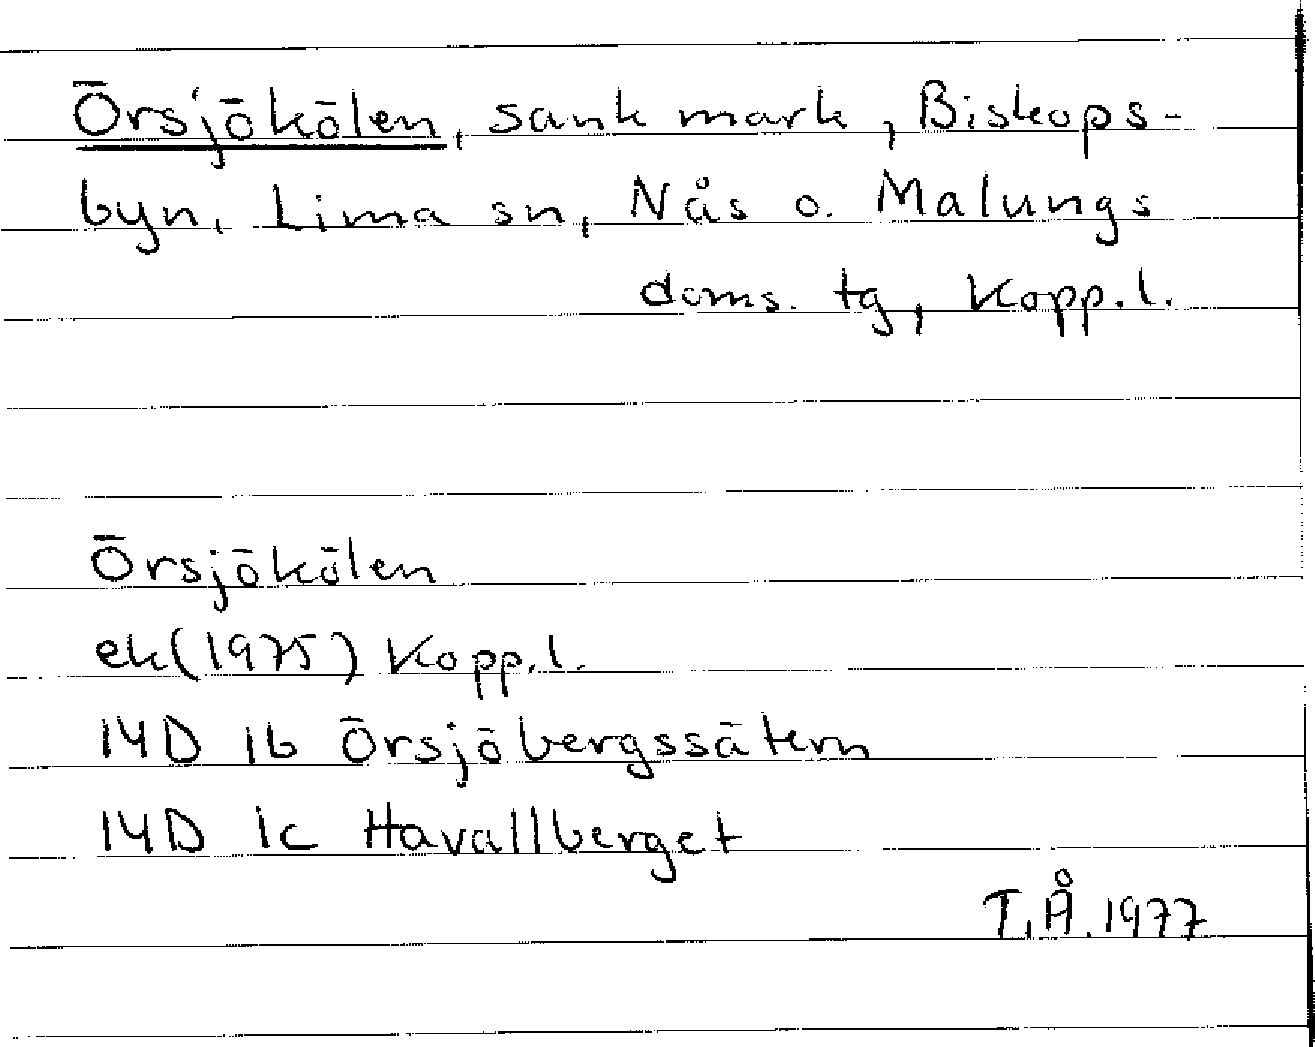 Örsjökölen, sank mark, Biskops-
byn, Lima sn, Nås o. Malungs
doms. tg, Kopp.l.
Örsjökölen
ek(1975) Kopp.l.
14D 1b Örsjöbergssätern
14D 1c Havallberget
T.Å.1977